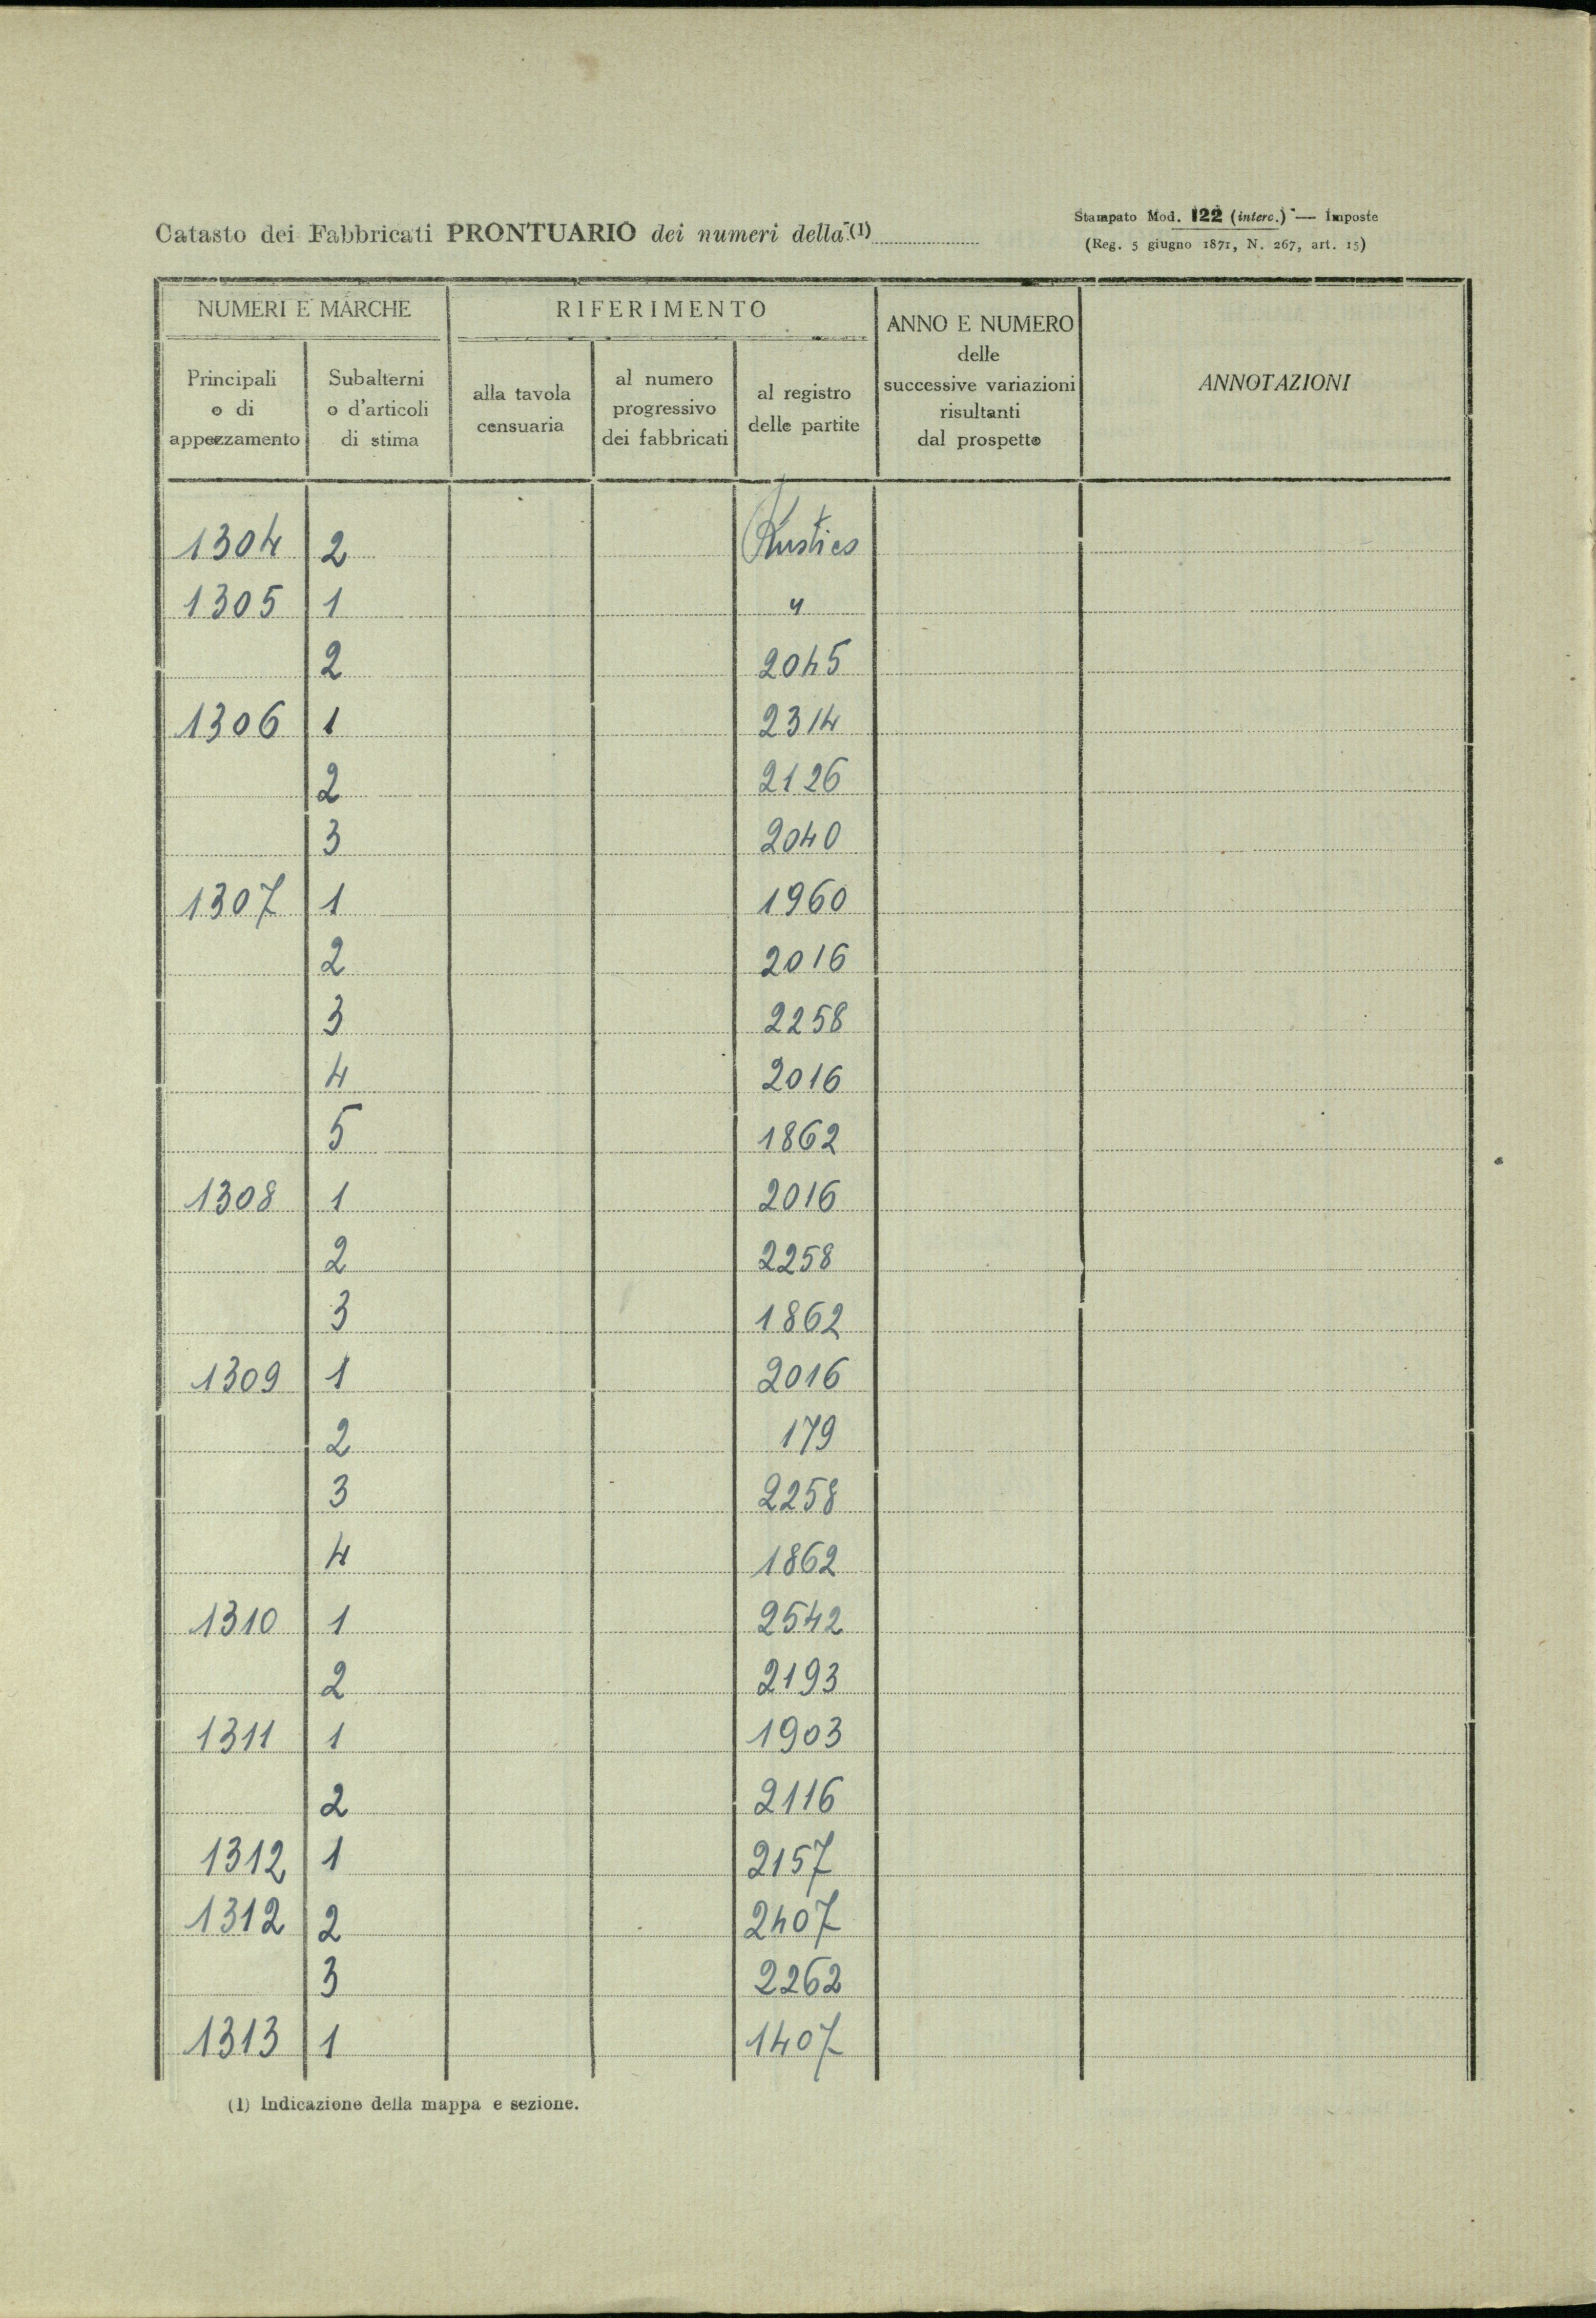 Catasto dei Fabbricati PRONTUARIO dei numeri della (1)
Stampato Mod. 122 (interc.) — Imposte
(Reg. 5 giugno 1871, N. 267, art. 15)
NUMERI E MARCHE
RIFERIMENTO
ANNO E NUMERO
delle
successive variazioni
risultanti
dal prospetto
ANNOTAZIONI
Principali
o di
appezzamento
Subalterni
o d'articoli
di stima
alla tavola
censuaria
al numero
progressivo
dei fabbricati
al registro
delle partite
1304 2 Rustico
1305 1 "
2 2045
1306 1 2314
2 2126
3 2040
1307 1 1960
2 2016
3 2258
4 2016
5 1862
1308 1 2016
2 2258
3 1862
1309 1 2016
2 179
3 2258
4 1862
1310 1 2542
2 2193
1311 1 1903
2 2116
1312 1 2157
1312 2 2407
3 2262
1313 1 1407
(1) Indicazione della mappa e sezione.